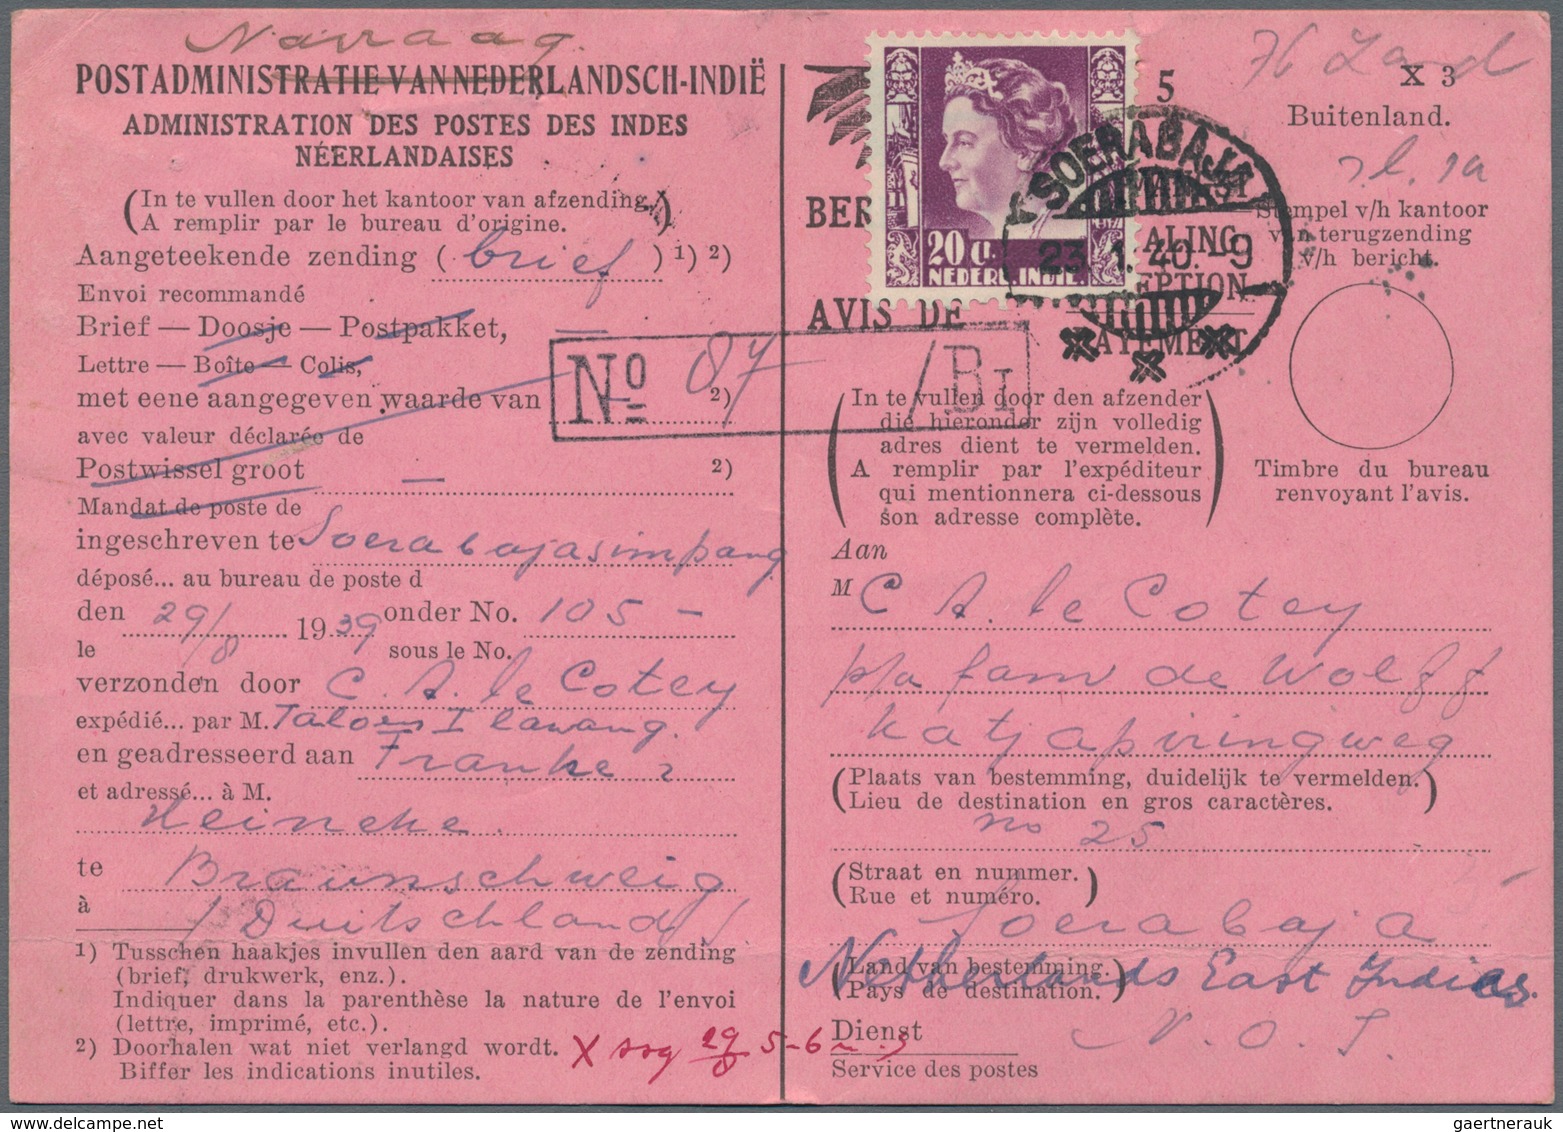 Navraag
POSTADMINISTRATIE VAN NEDERLANDSCH-INDIË
ADMINISTRATION DES POSTES DES INDES
NÉERLANDAISES
(In te vullen door het kantoor van afzending.
A remplir par le bureau d'origine.)
Aangeteekende zending (brief) 1) 2)
Envoi recommandé
Brief — Doosje — Postpakket,
Lettre — Boîte — Colis,
met eene aangegeven waarde van 2)
avec valeur déclarée de
Postwissel groot 2)
Mandat de poste de
ingeschreven te Soerabajasimpang
déposé... au bureau de poste d
den 29/8 1939 onder No. 105 -
le sous le No.
verzonden door C. A. le Cotey
expédié... par M. Taloen I Lawang.
en geadresseerd aan Franke
et adressé... à M.
Heincke.
te Braunschweig
à / Duitschland /
1) Tusschen haakjes invullen den aard van de zending
(brief, drukwerk, enz.).
Indiquer dans la parenthèse la nature de l'envoi
(lettre, imprimé, etc.).
2) Doorhalen wat niet verlangd wordt.
Biffer les indications inutiles.
X 29/8 5-6
No 87 /BI
20 ct.
NEDERL. INDIE.
SOERABAJA
23.1.40.-9
5
BER
ALING
EPTION.
AVIS DE
AYEMENT
(In te vullen door den afzender
die hieronder zijn volledig
adres dient te vermelden.
A remplir par l'expéditeur
qui mentionnera ci-dessous
son adresse complète.)
X 3
Buitenland.
Stempel v/h kantoor
van terugzending
v/h bericht.
Timbre du bureau
renvoyant l'avis.
Aan
M C A. le Cotey
p/a fam de Wolff
Katjapiringweg
(Plaats van bestemming, duidelijk te vermelden.
Lieu de destination en gros caractères.)
no 25
(Straat en nummer.
Rue et numéro.)
Soerabaja
(Land van bestemming.
Pays de destination.)
Netherlands East Indies.
N. O. I.
Dienst
Service des postes
gaertnerauk